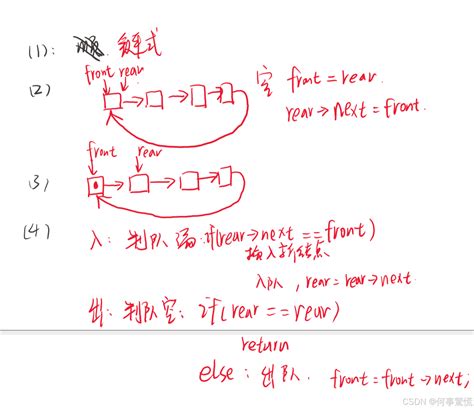 (1): 链式
front rear
(2) 空 front = rear.
rear→next = front.
front rear
(3)
(4)
入: 判队满: if(rear→next == front)
插入新结点
入队, rear = rear→next.
出: 判队空: if(rear == rear)
return
else: 出队. front = front→next;
CSDN @何事驚慌